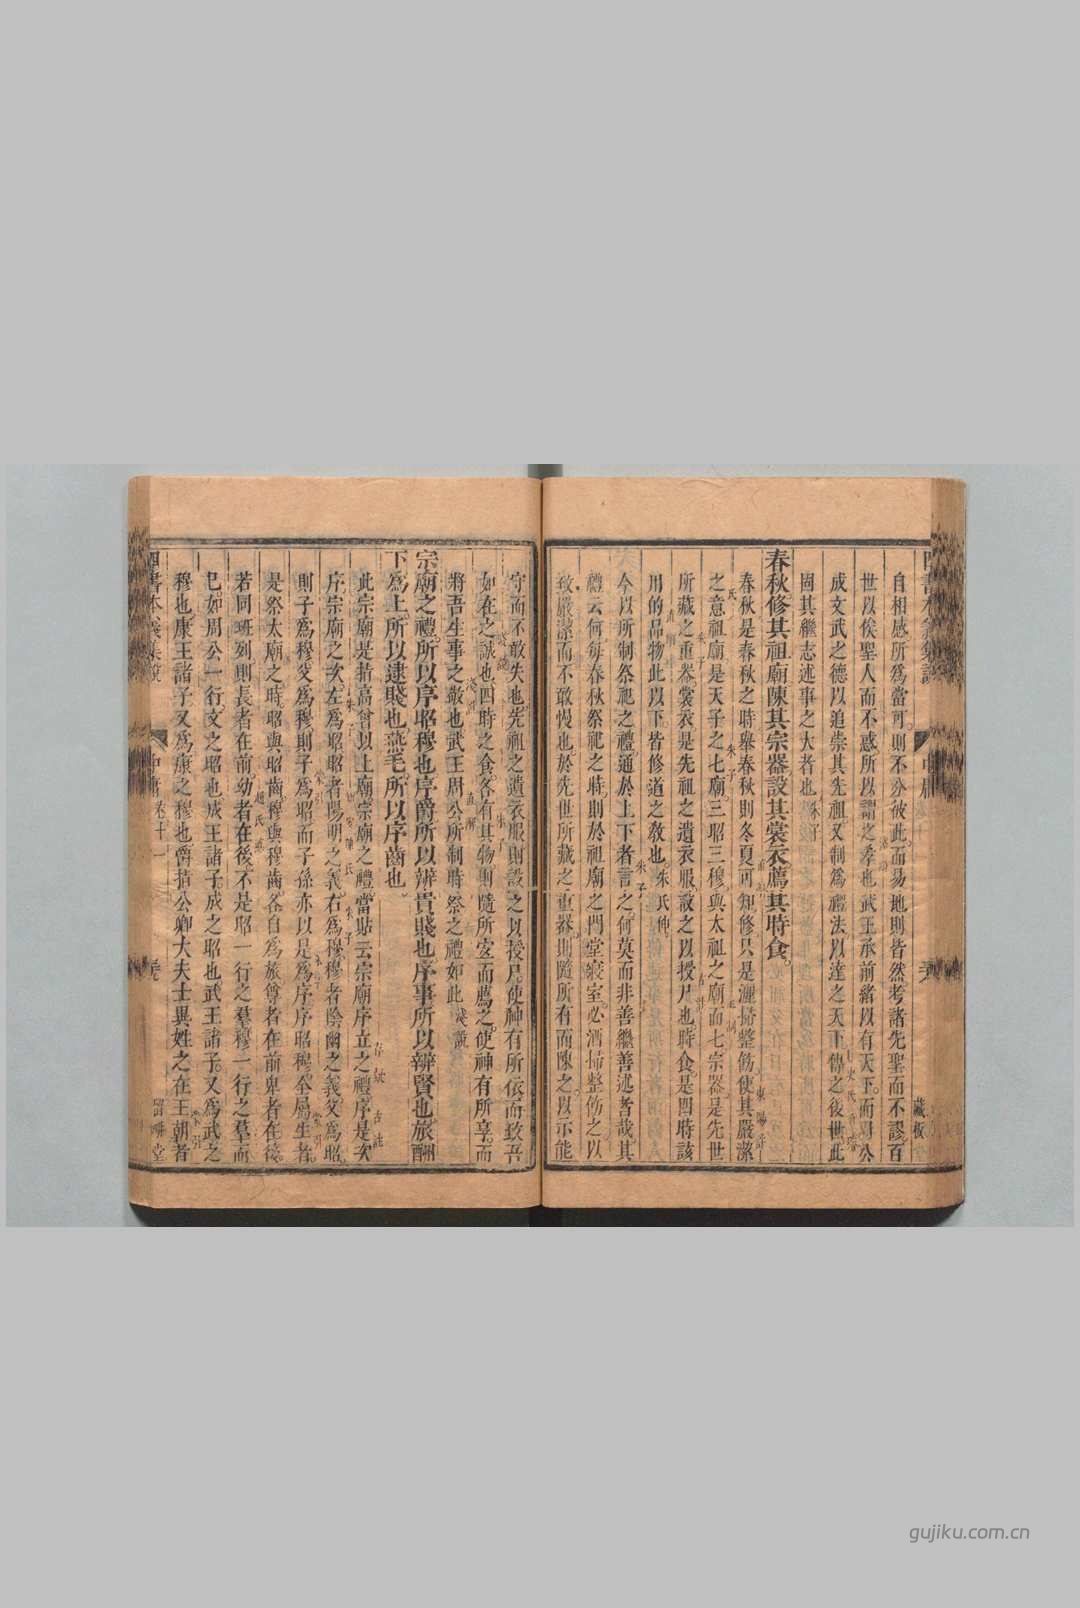 自相感所爲當可則不分彼此而易地則皆然考諸先聖而不謬百
世以俟聖人而不惑所以謂之孝也武王承前緒以有天下而周公
成文武之德以追崇其先祖又制爲禮法以達之天下傳之後世此
固其繼志述事之大者也朱子
春秋修其祖廟陳其宗器設其裳衣薦其時食
春秋是春秋之時舉春秋則冬夏可知修只是灑掃整飭使其嚴潔
之意祖廟是天子之七廟三昭三穆與太祖之廟而七宗器是先世
所藏之重器裳衣是先祖之遺衣服設之以授尸也時食是四時該
用的品物此以下皆修道之教也
今以所制祭祀之禮通於上下者言之何莫而非善繼善述者哉其
禮云何每春秋祭祀之時則於祖廟之門堂寢室必洒掃整飭之以
致嚴潔而不敢慢也於先世所藏之重器則隨所有而陳之以示能
守而不敢失也先祖之遺衣服則設之以授尸使神有所依而致吾
如在之誠也四時之食各有其物則隨所宜而薦之使神有所享而
將吾生事之敬也武王周公所制時祭之禮如此淺說
宗廟之禮所以序昭穆也序爵所以辨貴賤也序事所以辨賢也旅酬
下爲上所以逮賤也燕毛所以序齒也
此宗廟是指高曾以上廟宗廟之禮當貼云宗廟序立之禮序是次
序宗廟之次左爲昭昭者陽明之義右爲穆穆者陰幽之義父爲昭
則子爲穆父爲穆則子爲昭而子孫亦以是爲序序昭穆全屬生者
是祭太廟之時昭與昭齒穆與穆齒各自爲旅尊者在前卑者在後
若同班列則長者在前幼者在後不是昭一行之羣穆一行之羣而
已如周公一行文之昭也成王諸子成之昭也武王諸子又爲武之
穆也康王諸子又爲康之穆也爵指公卿大夫士異姓之在王朝者
四書本義集說
中庸 卷十一
堂
藏板
gujiku.com.cn